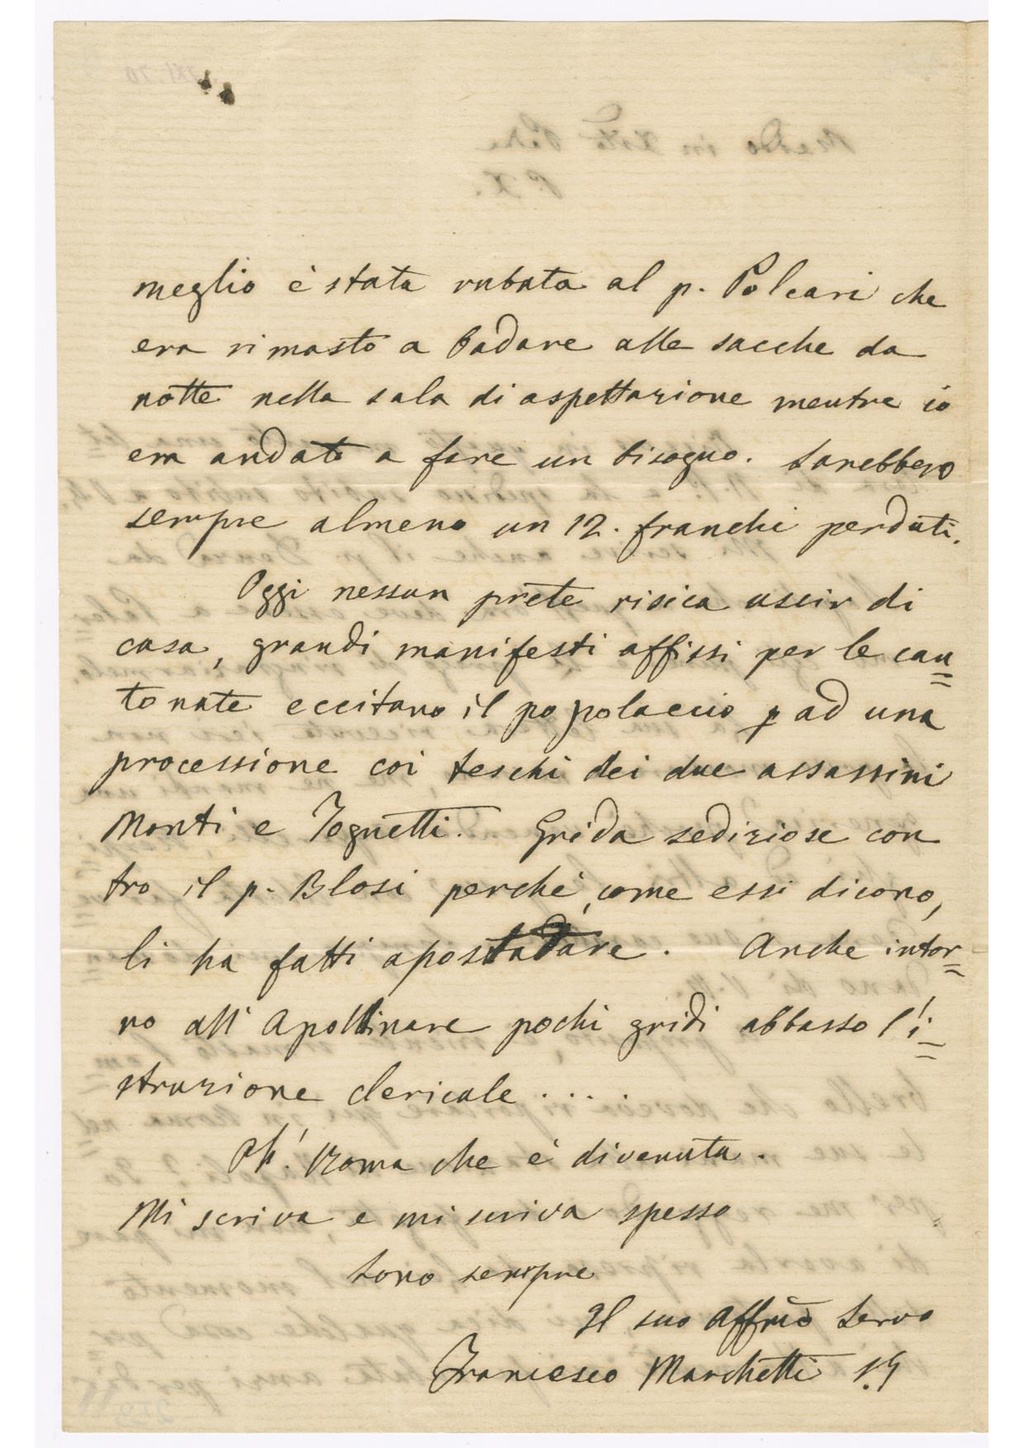 meglio è stata rubata al p. Polcari che
era rimasto a badare alle sacche da
notte nella sala di aspettazione mentre io
era andato a fare un bisogno. Sarebbero
sempre almeno un 12. franchi perduti.
Oggi nessun prete risica uscir di
casa, grandi manifesti affissi per le can=
tonate eccitano il popolaccio p ad una
processione coi teschi dei due assassini
Monti e Tognetti. Grida sediziose con
tro il p. Blosi perchè, come essi dicono,
li ha fatti apostatare. Anche intor=
no all' Apollinare pochi gridi abbasso l'i=
struzione clericale . . . .
Oh! Roma che è divenuta.
Mi scriva e mi scriva spesso
Sono sempre
Il suo Affmo Servo
Francesco Marchetti S.J.